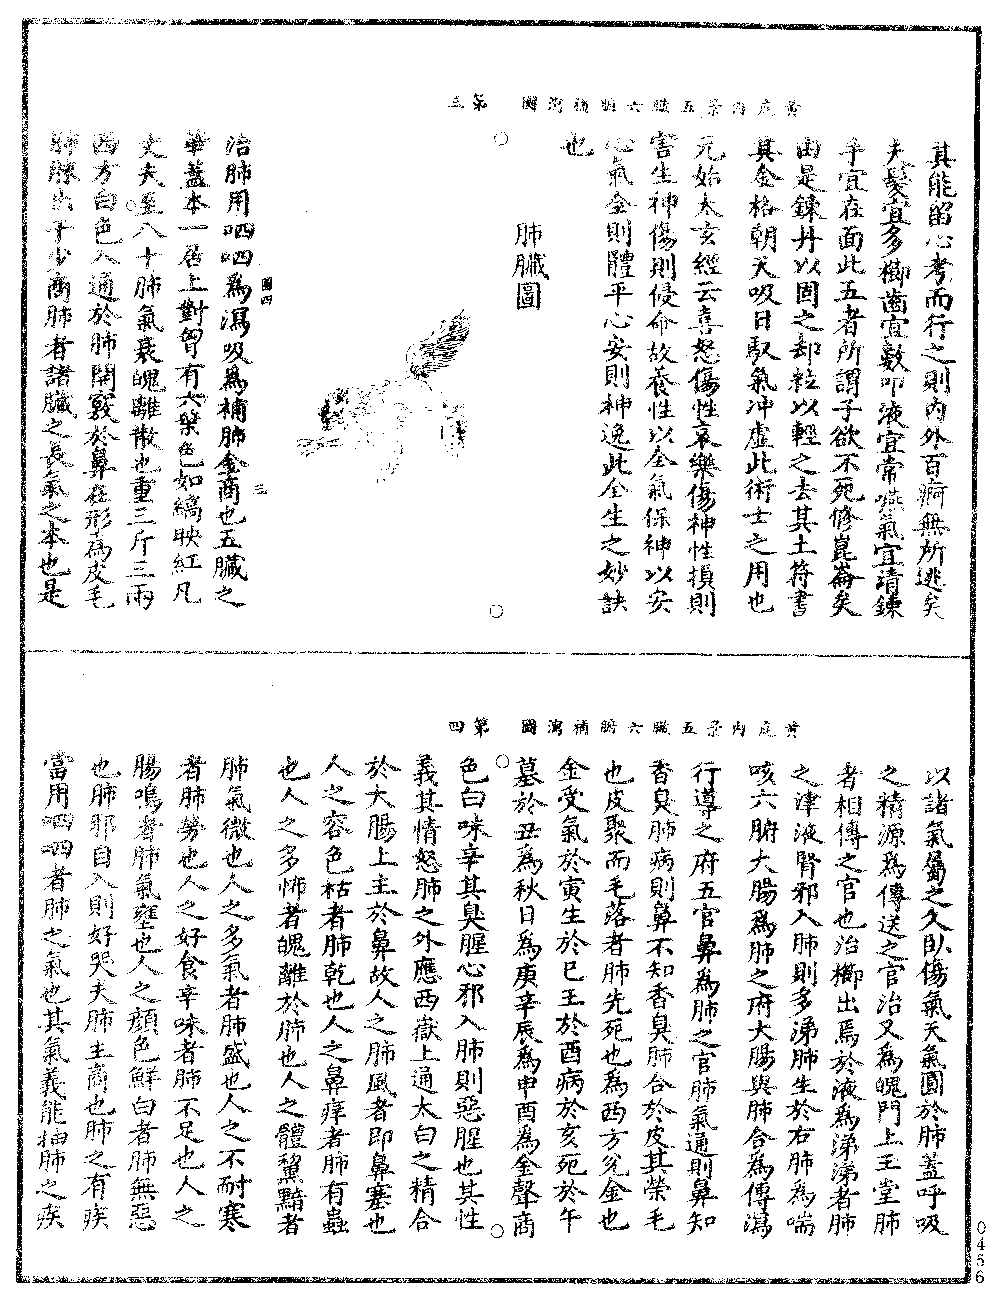 黃庭內景五臟六腑補瀉圖　第三
其能留心考而行之則內外百痾無所逃矣
夫髮宜多櫛齒宜數叩液宜常嚥氣宜清鍊
手宜在面此五者所謂子欲不死修崑崙矣
由是鍊丹以固之却粒以輕之去其土符書
其金格朝天吸日馭氣冲虛此術士之用也
元始太玄經云喜怒傷性哀樂傷神性損則
害生神傷則侵命故養性以全氣保神以安
心氣全則體平心安則神逸此全生之妙訣
也
肺臟圖
圖四
三
治肺用呬呬為瀉吸為補肺金商也五臟之
華蓋本一居上對胷有六葉色如縞映紅凡
丈夫至八十肺氣衰魄離散也重三斤三兩
西方白色入通於肺開竅於鼻在形為皮毛
肺脉出于少商肺者諸臟之長氣之本也是
黃庭內景五臟六腑補瀉圖　第四
以諸氣屬之久臥傷氣天氣圓於肺蓋呼吸
之精源為傳送之官治又為魄門上玉堂肺
者相傳之官也治櫛出焉於液為涕涕者肺
之津液腎邪入肺則多涕肺生於右肺為喘
咳六腑大腸為肺之府大腸與肺合為傳瀉
行導之府五官鼻為肺之官肺氣通則鼻知
香臭肺病則鼻不知香臭肺合於皮其榮毛
也皮聚而毛落者肺先死也為西方兌金也
金受氣於寅生於巳王於酉病於亥死於午
墓於丑為秋日為庚辛辰為申酉為金聲商
色白味辛其臭腥心邪入肺則惡腥也其性
義其情怒肺之外應西嶽上通太白之精合
於大腸上主於鼻故人之肺風者即鼻塞也
人之容色枯者肺乾也人之鼻痒者肺有蟲
也人之多怖者魄離於肺也人之體黧黯者
肺氣微也人之多氣者肺盛也人之不耐寒
者肺勞也人之好食辛味者肺不足也人之
腸鳴者肺氣壅也人之顏色鮮白者肺無惡
也肺邪自入則好哭夫肺主商也肺之有疾
當用呬呬者肺之氣也其氣義能抽肺之疾
0456